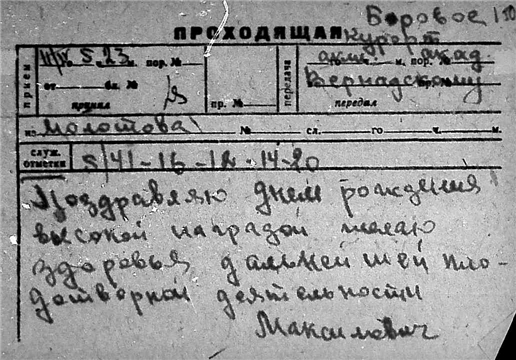 Боровое 150
ПРОХОДЯЩАЯ
Курорт
прием ч. 5 23 м. пор. № передача м. пор. № акад
от бл. № Вернадскому
принял пр. № передал
из Молотова № сл. го ч. м.
СЛУЖ. ОТМЕТКИ 5/41-16-12-14-20
Поздравляю днем рождения
высокой наградой желаю
здоровья дальнейшей пло-
дотворной деятельности
Максимович